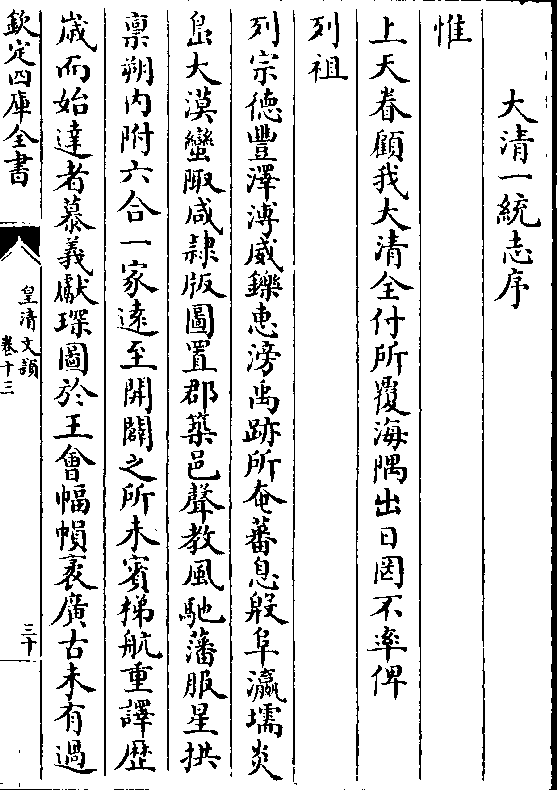 大清一統志序
惟
上天眷顧我大清全付所覆海隅出日罔不率俾
列祖
列宗德豐澤溥威鑠惠滂禹跡所奄蕃息殷阜瀛壖炎
島大漠蠻陬咸隸版圖置郡築邑聲教風馳藩服星拱
禀朔内附六合一家逺至開闢之所未賓梯航重譯歴
歳而始達者慕義獻琛圖於王會幅幀袤廣古未有過
欽定四庫全書
皇清文頴
卷十三
三十